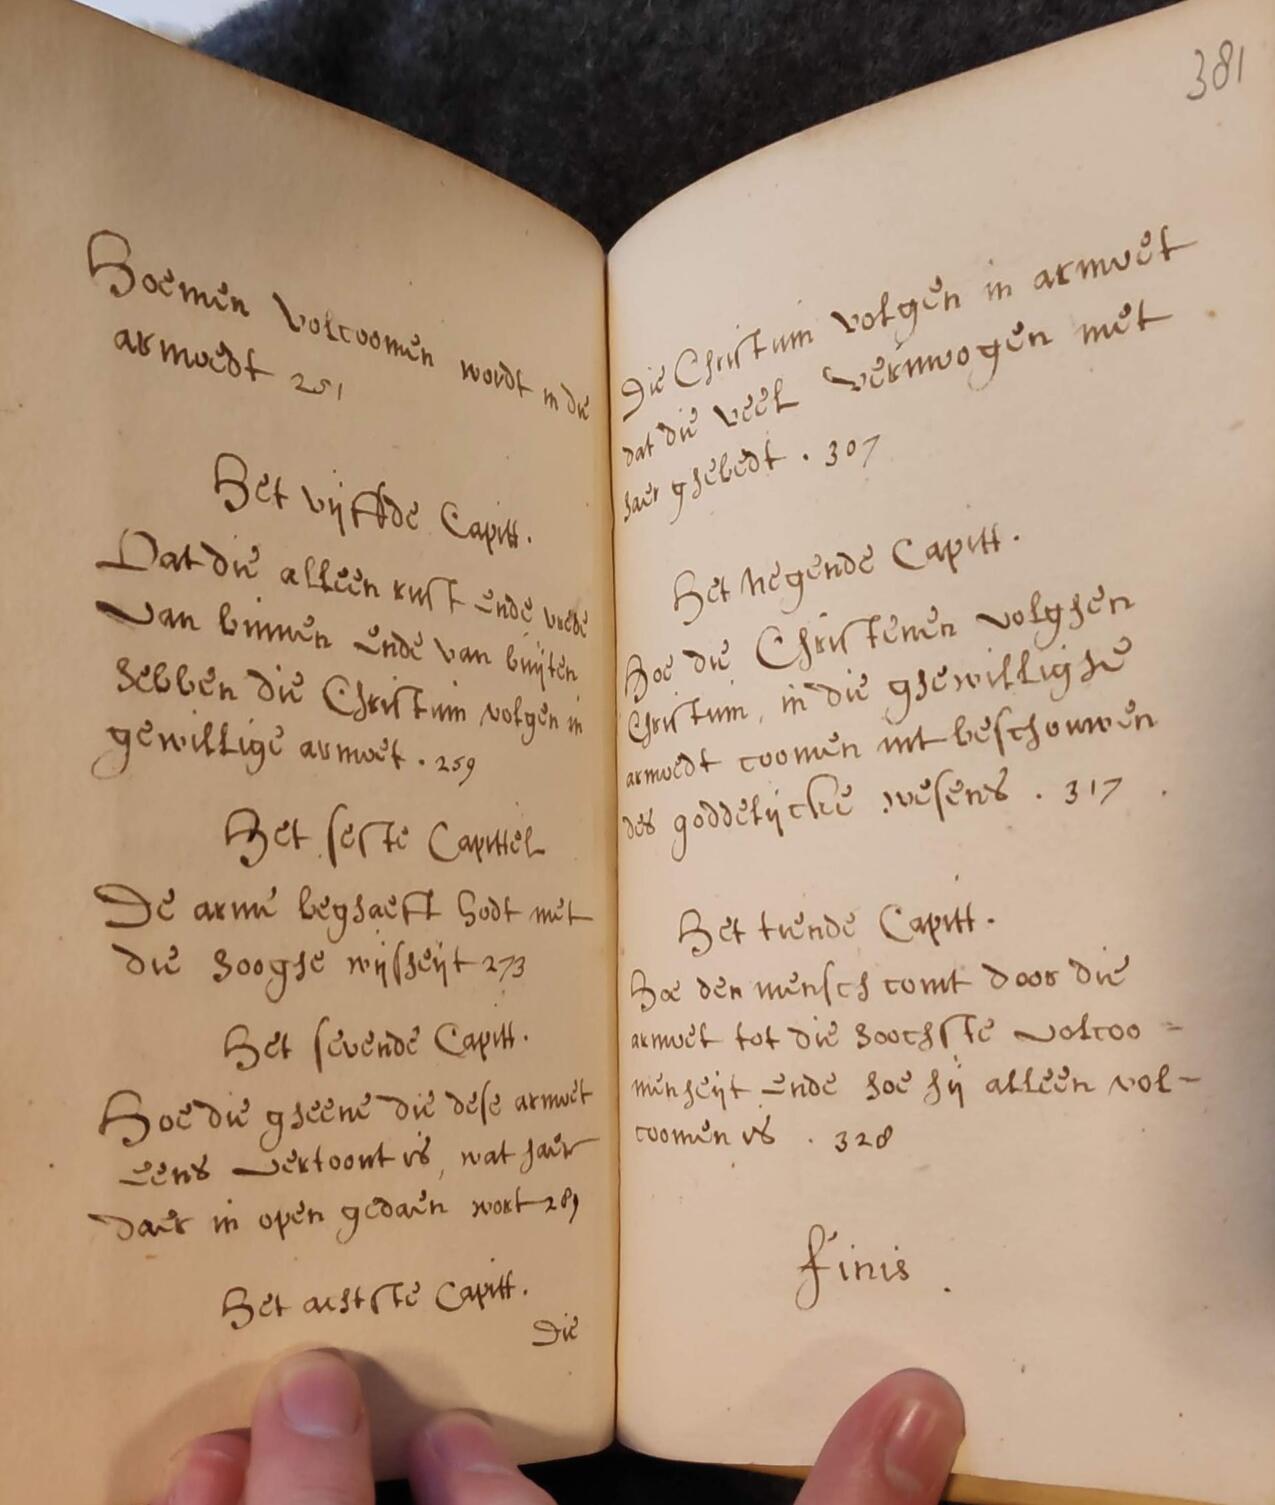 Hoemen volcoomen wordt in die
armoedt 251
Het vijffde Capitt.
Dat die alleen rust ende vrede
van binnen ende van buijten
hebben die Christum volgen in
gewillige armoet . 259
Het seste Capittel
De arme beghaeft Godt met
die hooghe wijsheijt 273
Het sevende Capitt.
Hoe die gheene die dese armoet
eens vertoont is, wat haer
daer in open gedaen wort 289
Het achtste Capitt.
Die
381
Die Christum volgen in armoet
dat die veel vermoogen met
haer ghebedt . 307
Het negende Capitt.
Hoe die Christenen volghen
Christum, in die ghewillighe
armoedt coomen int beschouwen
des goddelijcke wesens . 317
Het tiende Capitt.
Hoe den mensch comt door die
armoet tot die hoochste volcoo=
menheijt ende hoe hij alleen vol-
coomen is . 328
Finis.